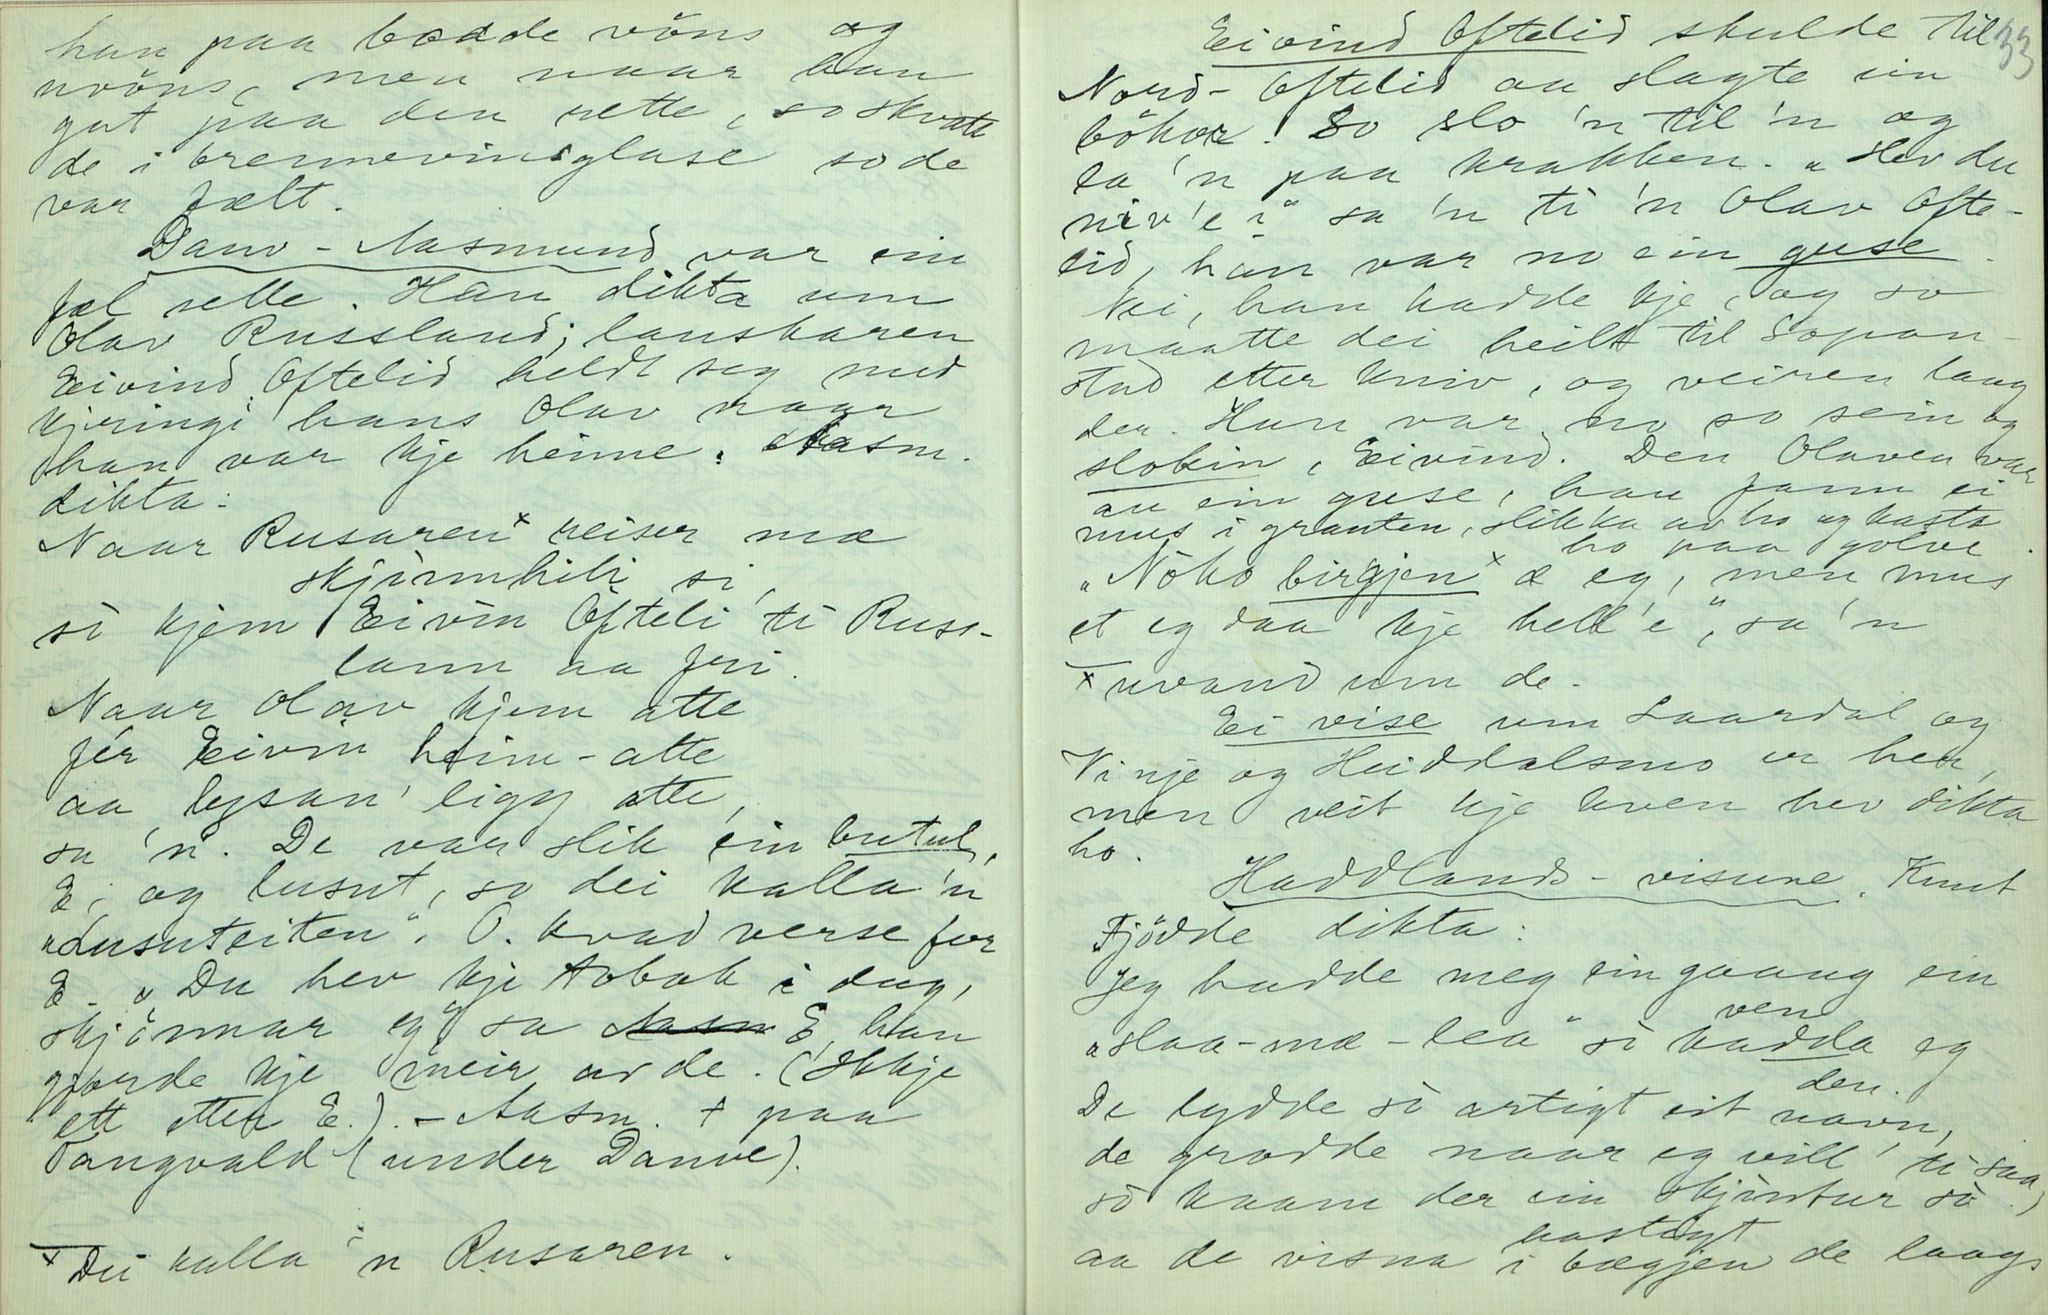 han paa baade vöns og
uvöns, men naar han
gat paa den rette, so skvatt
de i brennevinsglase so de
var fælt.
Danv-Aasmund var ein
fæl relle. Han dikta um
Olav Russland; lauskaren
Eivind Oftelid heldt seg med
kjeringi hans Olav naar
han var kje heime. Aasm.
dikta:
Naar Rusaren x reiser mæ
skjirmhili si,
sò kjem Eivin Öfteli ti Russ-
lann aa fri.
Naar Olav kjem atte
fér Eivin heim-atte
aa lysan' ligg atte,
sa 'n. De var slik ein butul,
E, og lusut, so dei kalla 'n
"Lusuteiten". O. kvad verse for
E. "Du hev kje tobak i dag,
skjönnar eg" sa E, han
gjorde kje meir av de. (Ikkje
ett etter E.). - Aasm. + paa
Tangvald (under Danve).
x Dei kalla 'n Rusaren.
33
Eivind Oftelid skulde til
Nord-Oftelid aa slagte ein
bökar. So slo 'n til 'n og
la 'n paa krakken. "Hev du
niv'e i" sa 'n ti 'n Olav Ofte-
lid, han var no ein guse.
Nei, han hadde kje, og so
maatte dei heilt til Sopan-
stad etter kniv, og veiren laag
der. Han var no so sein og
slokin, Eivind. Den Olaven var
au ein guse, han fann ei
mus i grauten, slikka av ho og kasta
ho paa golve.
"Nöko birgjen x æ eg, men mus
et eg daa kje hell'e", sa 'n
x uvand um de.
Ei vise um Laardal og
Vinje og Heiddalsmo er her,
men veit kje kven hev dikta
ho.
Haddlands-visune. Knut
Fjödde dikta:
Jeg hadde meg ein gaang ein
ven
"slaa-mæ-lea" sò kadda eg
den.
De lydde sò artigt eit navn,
de grodde naar eg vill' ti saa,
sò kaam der ein skjintur sò
hastigt
aa de visna i bægjen de laags